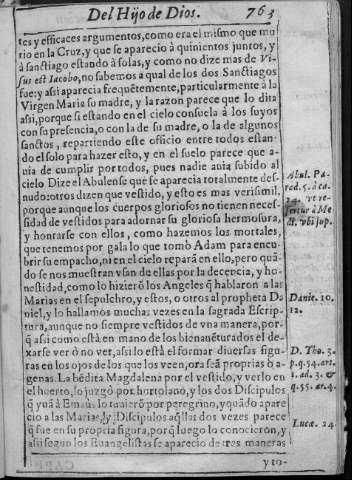 Del Hijo de Dios. 763
tes y efficaces argumentos, como era el mismo que mu
rio en la Cruz, y que se aparecio à quinientos juntos, y
à sanctiago estando à solas, y como no dize mas de Vi-
sus est Iacobo, no sabemos a qual de los dos Sanctiagos
fue: y assi aparecia frequētemente, particularmente à la
Virgen Maria su madre, y la razon parece que lo dita
assi, porque si estando en el cielo consuela à los suyos
con su presencia, o con la de su madre, o la de algunos
sanctos, repartiendo este officio entre todos estan-
do el solo para hazer esto, y en el suelo parece que a-
uia de cumplir por todos, pues nadie auia subido al
cielo Dize el Abulense que se aparecia totalmente des-
nudo: otros dizen que vestido, y esto es mas verisimil,
porque aunque los cuerpos gloriosos no tienen neces-
sidad de vestidos para adornar su gloriosa hermosura,
y honrarse con ellos, como hazemos los mortales,
que tenemos por gala lo que tomò Adam para encu-
brir su empacho, ni en el cielo repará en ello, pero quā-
do se nos muestran vsan de ellas por la decencia, y ho-
nestidad, como lo hizierō los Angeles q̃ hablaron a las
Marias en el sepulchro, y estos, o otros al propheta Da
niel, y lo hallamos muchas vezes en la sagrada Escrip-
tura, aunque no siempre vestidos de vna manera, por-
q̃ assi como està en mano de los bienauēturados el de-
xarse ver ò no ver, assi lo està el formar diuersas figu-
ras en los ojos de los que los veen, ora seā proprias ò a-
genas. La bēdita Magdalena por el vestido, y verlo en
el huerto, lo juzgò por hortolano, y los dos Discipulos
q̃ yuā à Emaus lo tuuierō por peregrino, y quādo apare
cio a las Marias, y Discipulos aq̃llas dos vezes parece
q̃ fue en su propria figura, porq̃ luego lo conocieron, y
assi segun los Euangelistas se aparecio de tres maneras
yro-
Abul. Pa-
rad. 5. à ca.
vt re-
fertur à Me
vbi sup.
Danie. 10.
12.
D. Tho. 3.
p. q. 54. ar.
1. ad. 3. &
q. 55. ar. 4.
Lucæ. 24